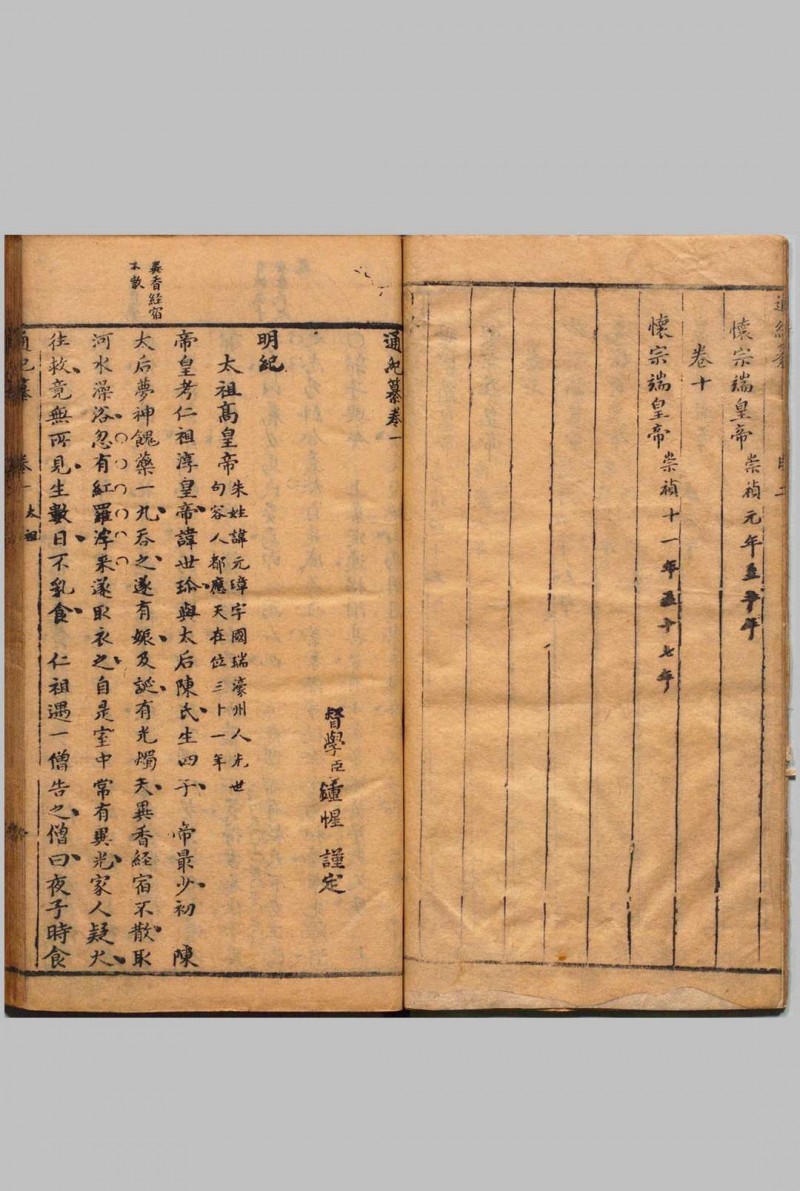 懷宗端皇帝 崇禎元年至十年
卷十
懷宗端皇帝 崇禎十一年至十七年
通紀纂卷一
督學臣鍾惺 謹定
明紀
太祖髙皇帝 朱姓諱元璋字國瑞濠州人先世
句容人都應天在位三十一年
帝皇考仁祖淳皇帝諱世珍與太后陳氏生四子 帝最少初 陳
太后夢神餽藥一丸吞之遂有娠及誕有光燭天異香経宿不散取
河水澡浴忽有紅羅浮來遂取衣之自是室中常有異光家人疑火
往救竟無所見生數日不乳食 仁祖遇一僧告之僧曰夜子時食
異香経宿
不散
通紀纂 卷一 太祖